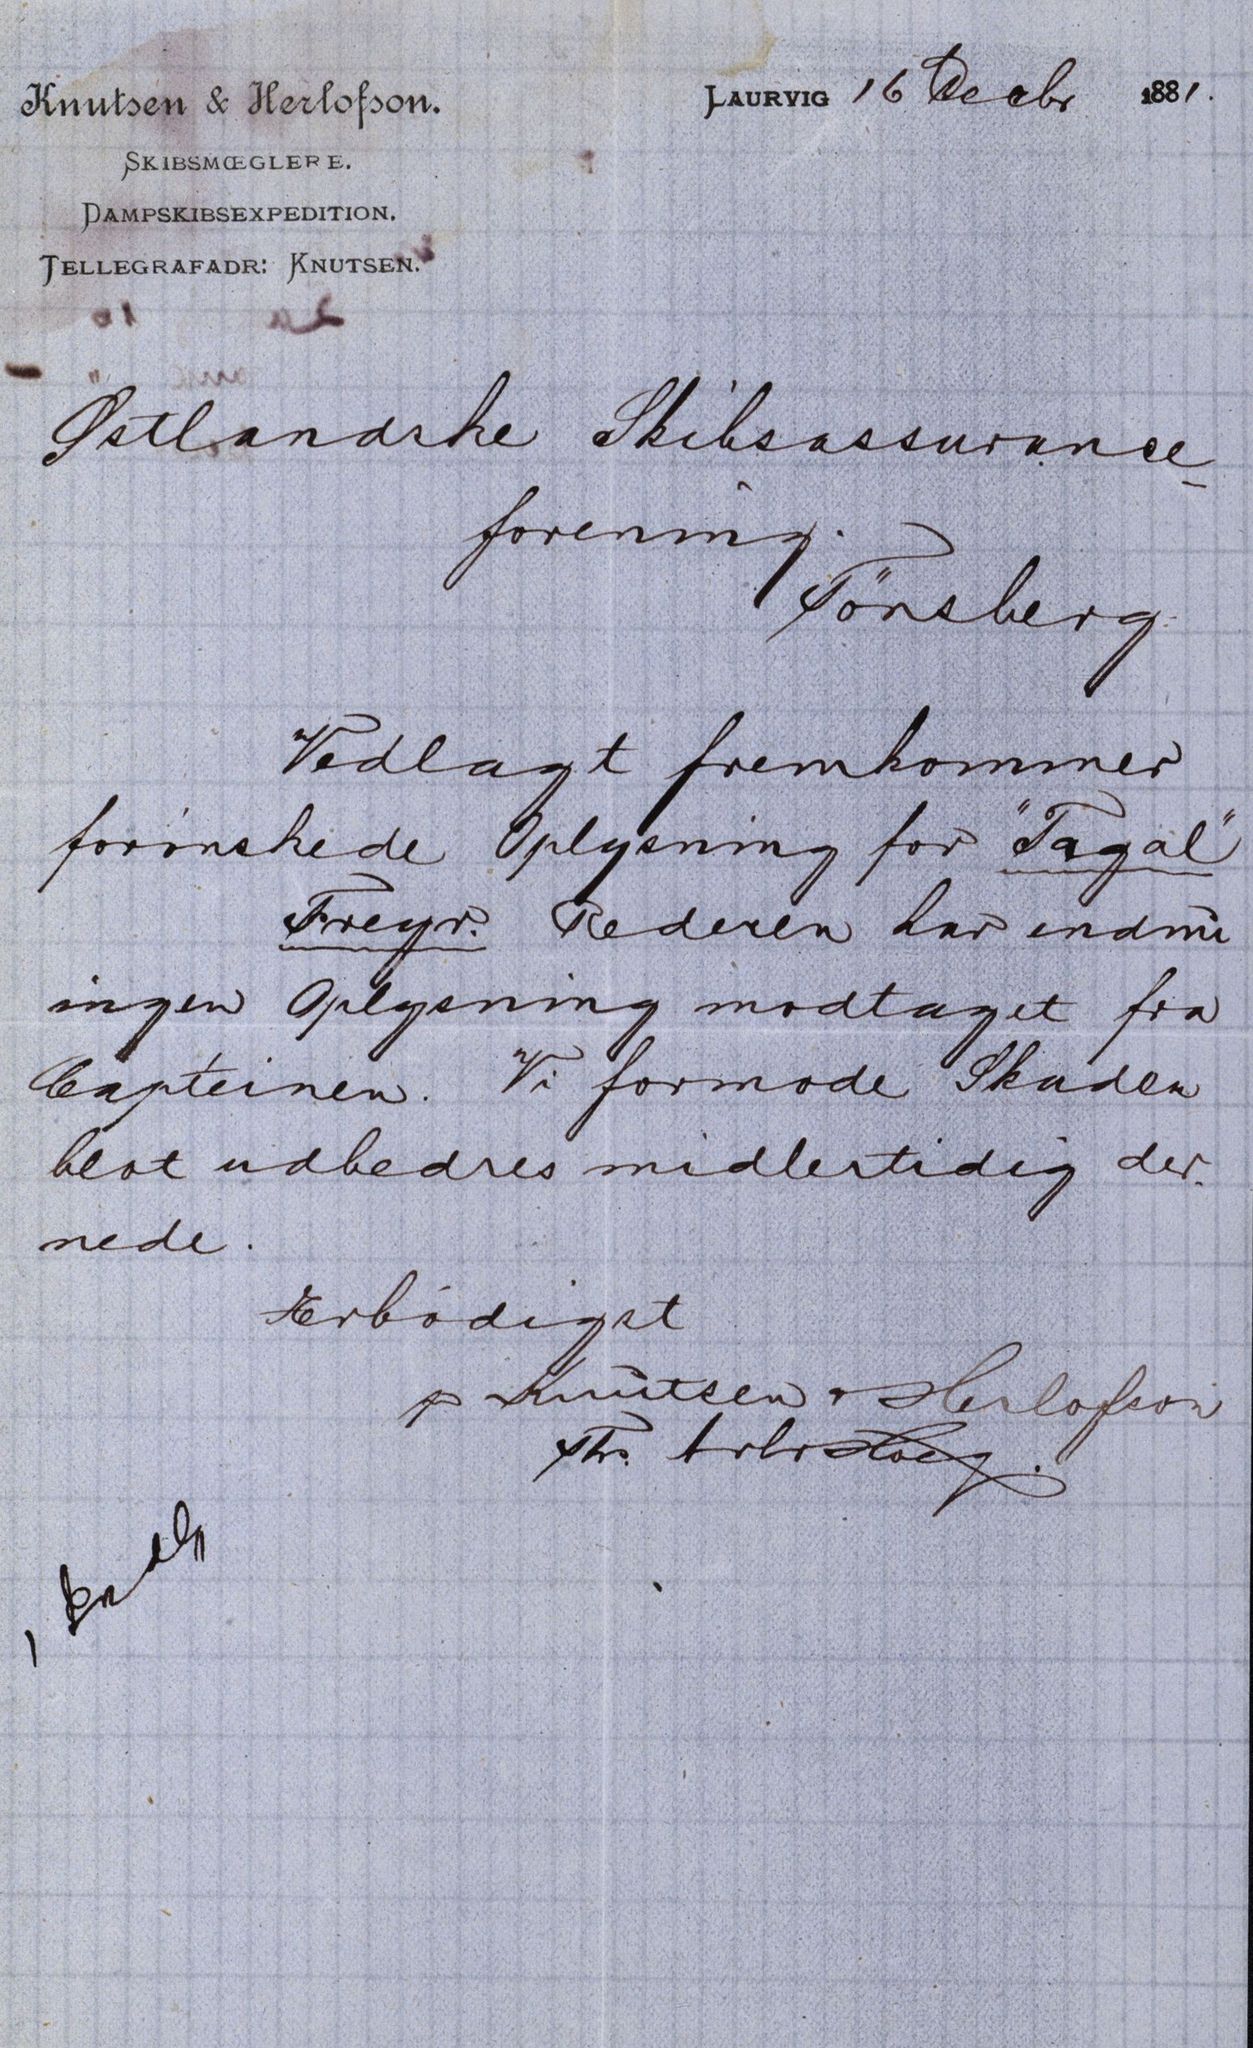 Knutsen & Herlofson.
SKIBSMŒGLERE.
DAMPSKIBSEXPEDITION.
TELLEGRAFADR: KNUTSEN.
LAURVIG 16 Decbr 1881.
Østlandske Skibsassurance
forening.
Tönsberg
Vedlagt fremkommer
forønskede Oplysning for "Tagal"
Freyr. Rederen har endnu
ingen Oplysning modtaget fra
Capteinen. Vi formode Skaden
blot udbedres midlertidig der-
nede.
Ærbødigst
p Knutsen & Herlofson